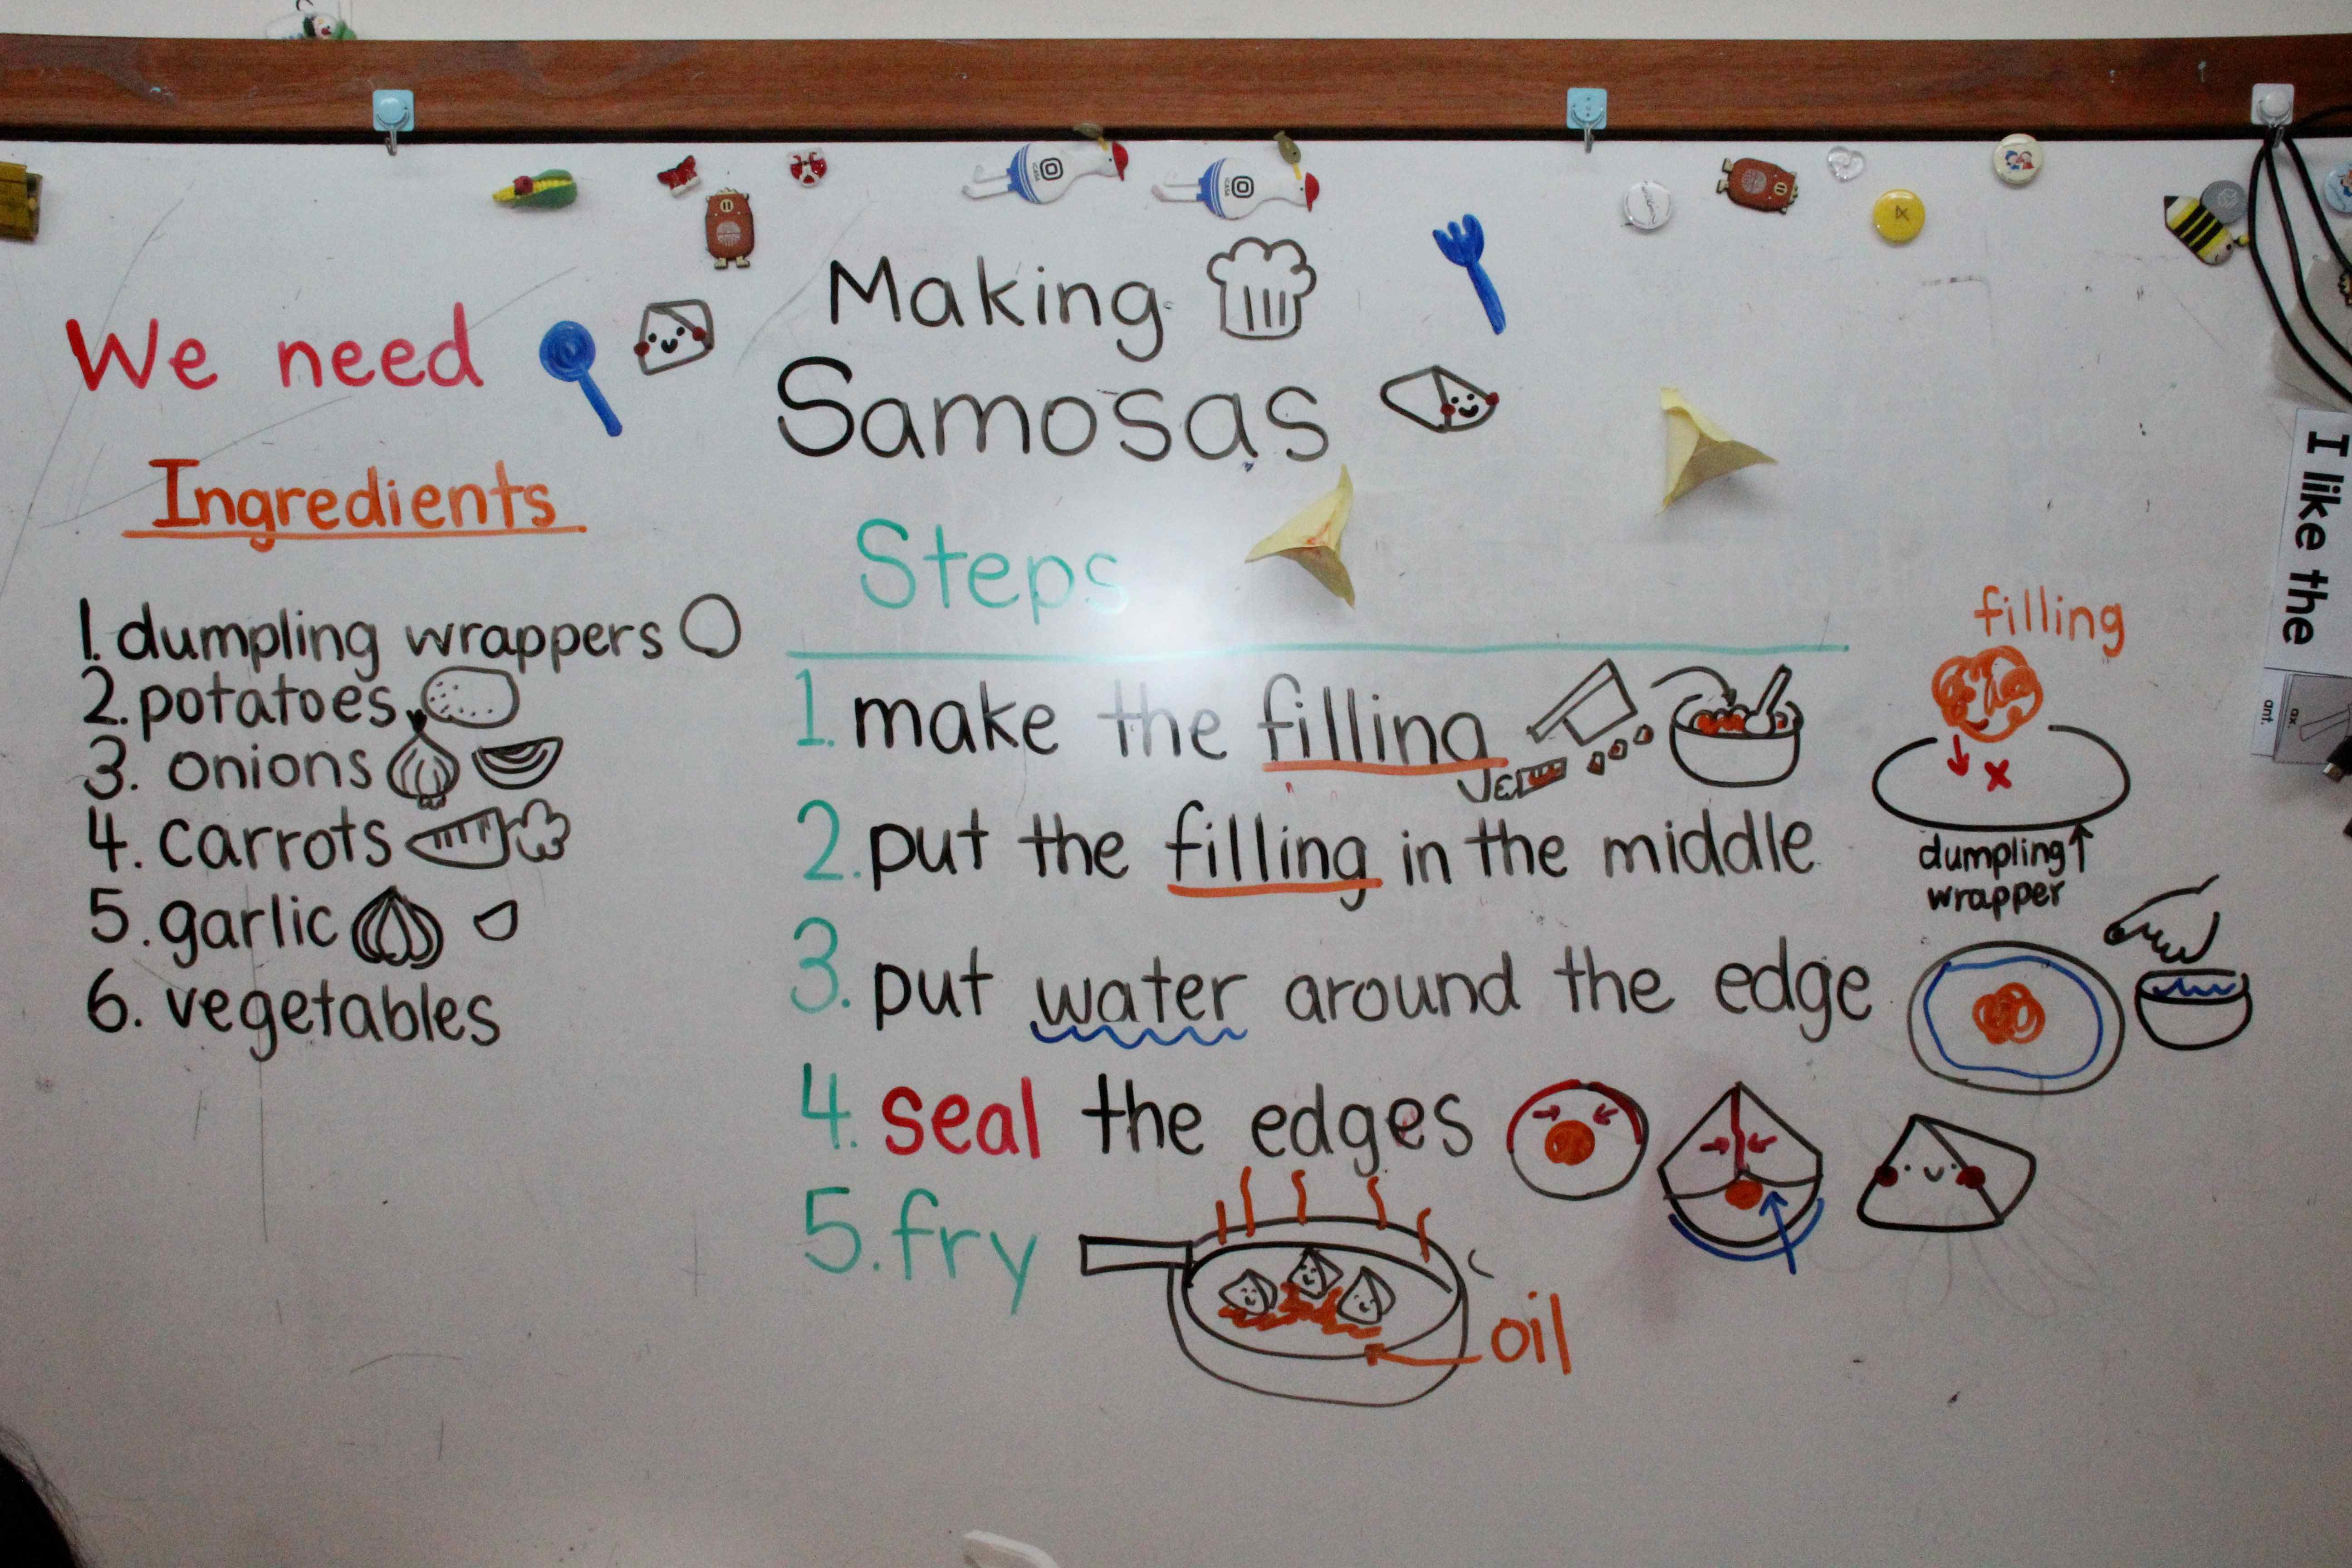 We need
Ingredients
1. dumpling wrappers
2. potatoes
3. onions
4. carrots
5. garlic
6. vegetables
Making
Samosas
Steps
1. make the filling
2. put the filling in the middle
3. put water around the edge
4. seal the edges
5. fry
oil
filling
dumpling
wrapper
I like the
ax
ant.